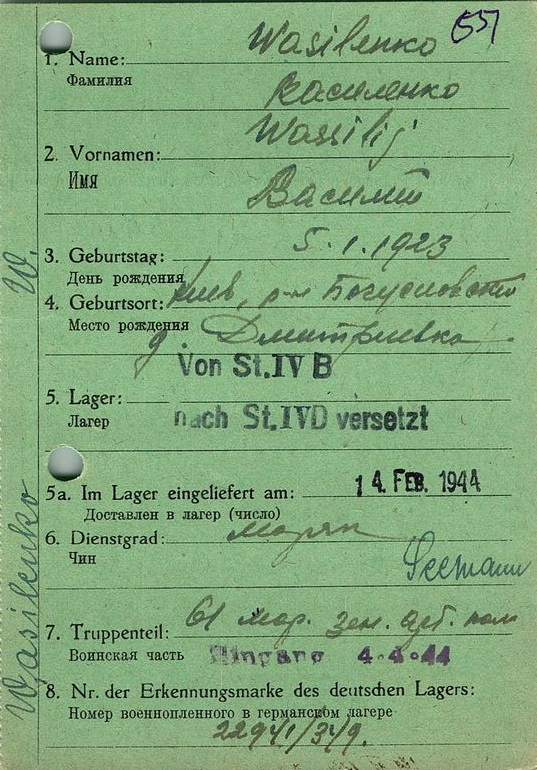 557
Wasilenko
1. Name:
Фамилия
Василенко
Wassilij
2. Vornamen:
Имя
Василий
3. Geburtstag: 5.1.1923
День рождения
4. Geburtsort: Киев, р-н Богусловский
Место рождения
д. Дмитриевка
Von St.IV B
5. Lager:
Лагер
nach St.IVD versetzt
5a. Im Lager eingeliefert am: 14. FEB. 1944
Доставлен в лагер (число)
6. Dienstgrad: моряк
Чин
Seemann
7. Truppenteil: 61 мар. зен. арт. полк
Воинская часть
Eingang 4.4.44
8. Nr. der Erkennungsmarke des deutschen Lagers:
Номер военнопленного в германском лагере
W. Wasilenko